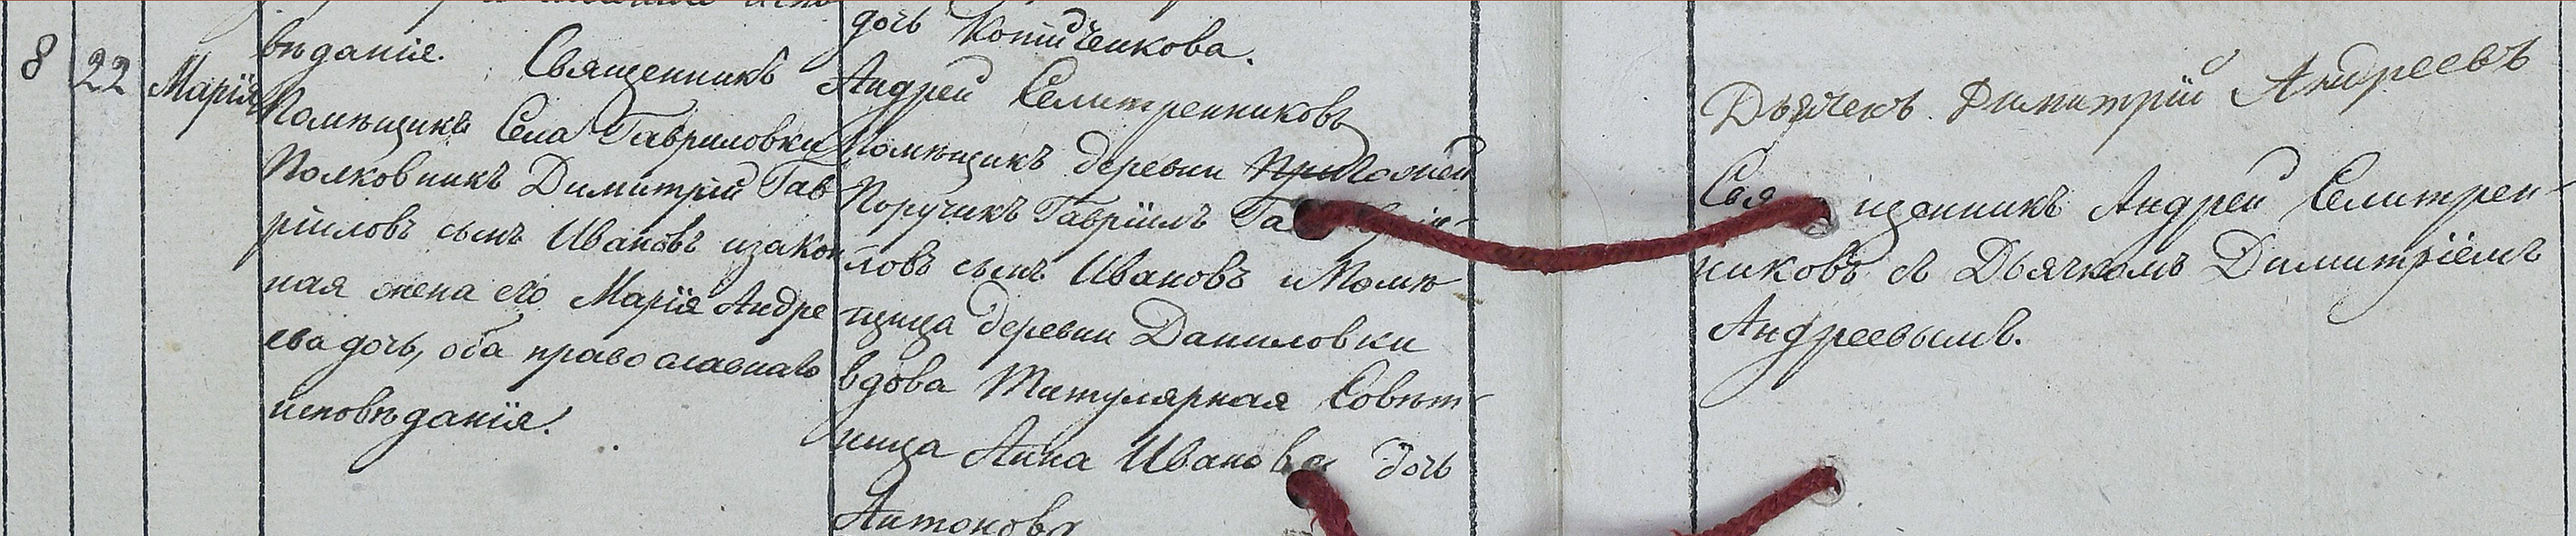 вѣданіе. Священникъ
8 22 Марія
Помѣщикъ Села Гавриловки
Полковникъ Димитрій Гав
ріиловъ сынъ Ивановъ изакон
ная жена его Марія Андре
ева дочь, оба православнаго
исповѣданія.
дочь
Андрей Селитренниковъ
Помѣщикъ деревни
Поручикъ Гавріилъ Га
ловъ сынъ Ивановъ иПомѣ
щица деревни Даниловки
вдова Титулярная Совѣт-
ница Анна Иванова дочь
Антонова
Дьячекъ Димитрій Андреевъ
Священникъ Андрей Селитрен-
никовъ съ Дьячкомъ Димитріемъ
Андреевымъ.